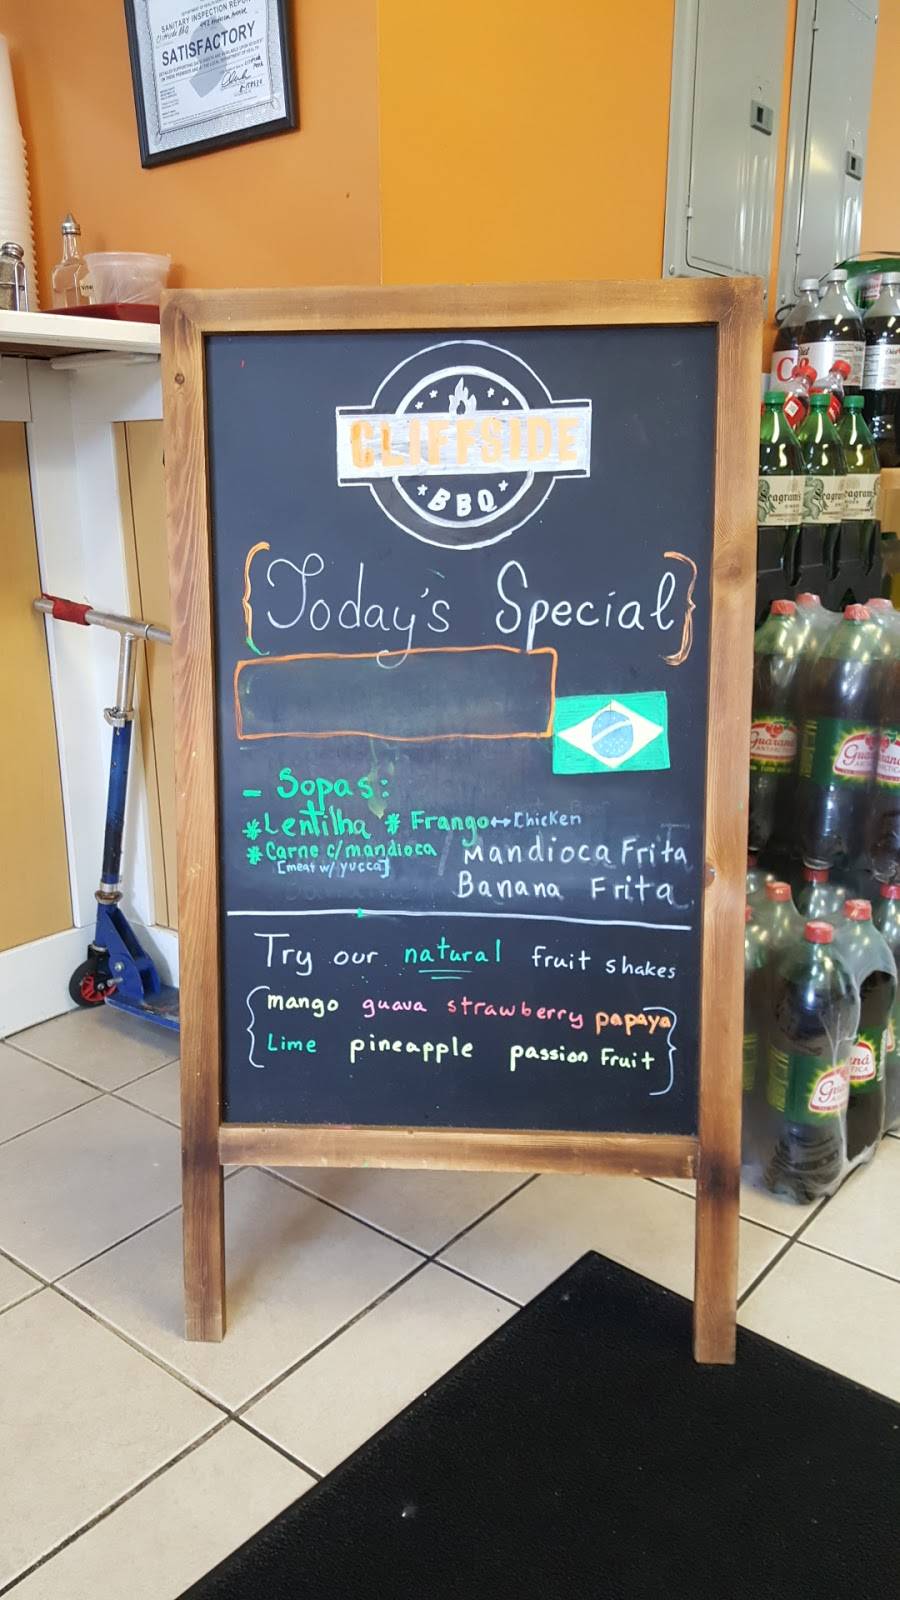 SANITARY INSPECTION REPORT
Cliffside BBQ
SATISFACTORY
CLIFFSIDE
BBQ
Today's Special
- Sopas:
*Lentilha * Frango↔Chicken
*Carne c/mandioca
[meat w/ yucca]
Mandioca Frita
Banana Frita
Try our natural fruit shakes
mango guava strawberry papaya
Lime pineapple passion Fruit
Diet
Seagram's
Seagram's
Guaraná
ANTARCTICA
Guaraná